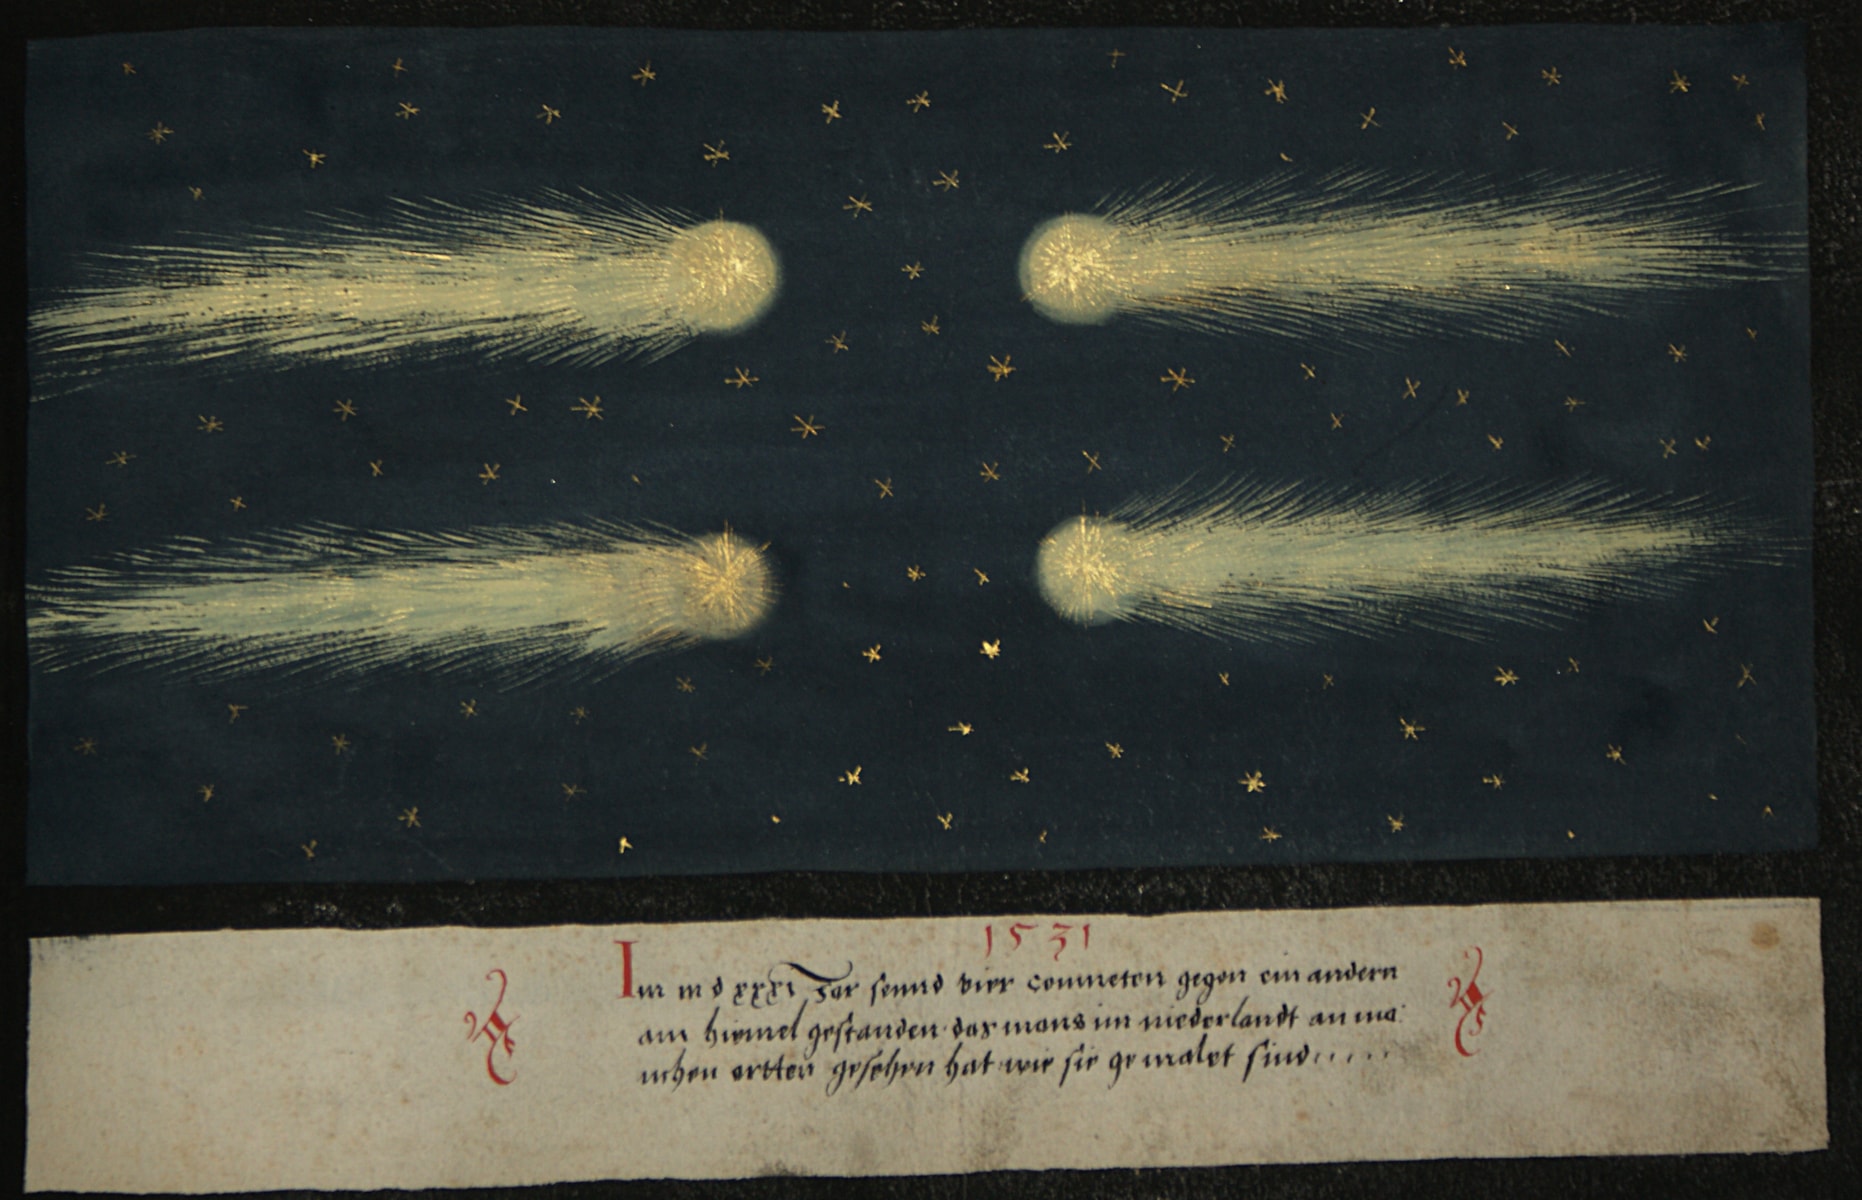 1531
Im m d xxxi Jar sennd vier commeten gegen ein andern
am himel gestanden das mans im niderlandt an ma:
nchen ortten gesehen hat wie sie gemalet sind.....